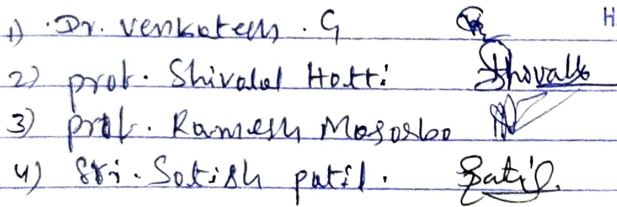 1) Dr. Venkatesh. G
2) prof. Shivalal Hatti
3) prof. Ramesh
4) Sri. Satish patil. Patil